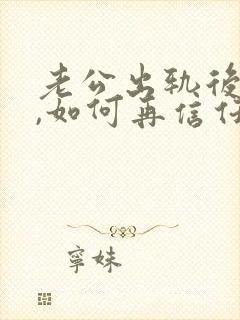 老公出轨後
,如何再信任
寧妹